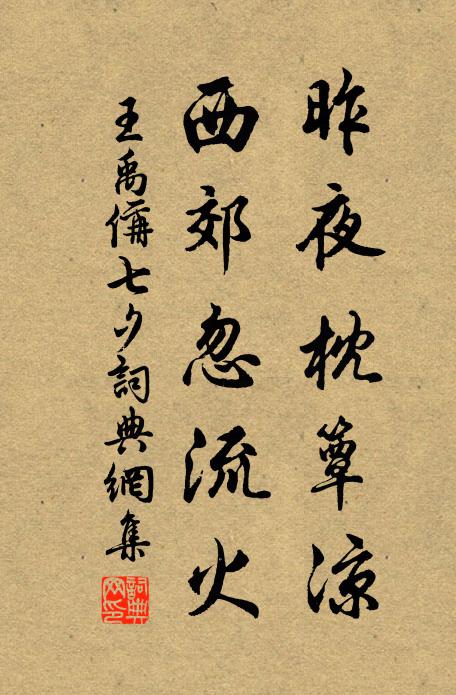 昨夜枕簟涼
西郊忽流火
王禹偁七夕詞典網集
詞典网印